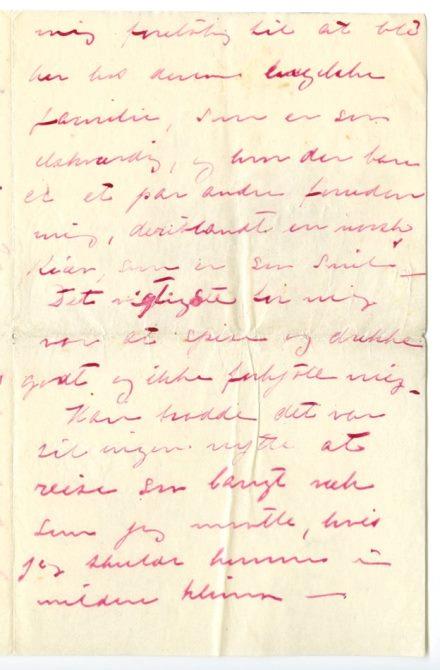 mig foreløbig til at bli
her hos denne engelske
familie, som er saa
elskværdig, og hvor der bare
er et par andre foruden
mig, deriblandt en norsk
som er saa snil —
Det vigtigste for mig
var at spise og drikke
godt og ikke forkjøle mig.
Han trodde det var
til ingen nytte at
reise saa langt væk
som jeg maatte, hvis
jeg skulde komme i
mildere klima —